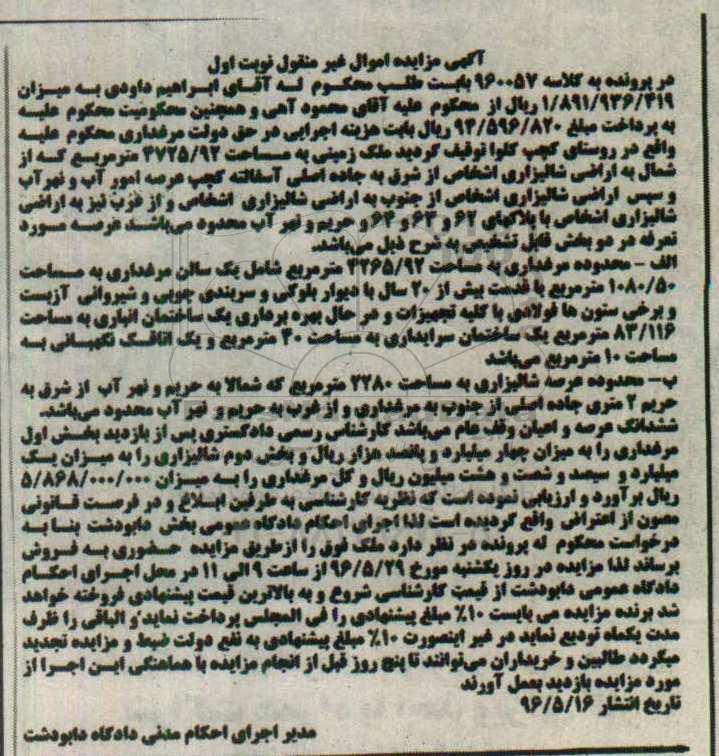 آگهی مزایده اموال غیر منقول نوبت اول
در پرونده به کلاسه ۹۶۰۰۵۷ بابت طلب محکوم له آقای ابراهیم داودی به میزان
۱/۸۹۱/۹۳۶/۴۱۹ ریال از محکوم علیه آقای محمود آهی و همچنین محکومیت محکوم علیه
به پرداخت مبلغ ۹۴/۵۹۶/۸۲۰ ریال بابت هزینه اجرایی در حق دولت مرغداری محکوم علیه
واقع در روستای کچپ کلوا توقیف گردید ملک زمینی به مساحت ۴۷۲۵/۹۲ مترمربع که از
شمال به اراضی شالیزاری اشخاص از شرق به جاده اصلی آسفالته کچپ عرصه امور آب و نهرآب
و سپس اراضی شالیزاری اشخاص از جنوب به اراضی شالیزاری اشخاص و از غرب نیز به اراضی
شالیزاری اشخاص با پلاکهای ۶۲ و ۶۳ و ۶۴ و حریم و نهر آب محدود می‌باشد عرصه مورد
تعرفه در دو بخش قابل تشخیص به شرح ذیل می‌باشد.
الف - محدوده مرغداری به مساحت ۲۲۶۵/۹۲ مترمربع شامل یک سالن مرغداری به مساحت
۱۰۸۰/۵۰ مترمربع با قدمت بیش از ۲۰ سال با دیوار بلوکی و سربندی چوبی و شیروانی آزبست
و برخی ستون ها فولادی با کلیه تجهیزات و در حال بهره برداری یک ساختمان انباری به مساحت
۸۳/۱۱۶ مترمربع یک ساختمان سرایداری به مساحت ۴۰ مترمربع و یک اتاقک نگهبانی به
مساحت ۱۰ مترمربع می‌باشد
ب- محدوده عرصه شالیزاری به مساحت ۲۲۸۰ مترمربع که شمالا به حریم و نهر آب از شرق به
حریم ۲ متری جاده اصلی از جنوب به مرغداری و از غرب به حریم و نهر آب محدود می‌باشد.
ششدانگ عرصه و اعیان وقف عام می‌باشد کارشناس رسمی دادگستری پس از بازدید بخش اول
مرغداری را به میزان چهار میلیارد و پانصد هزار ریال و بخش دوم شالیزاری را به میزان یک
میلیارد و سیصد و شصت و هشت میلیون ریال و کل مرغداری را به میزان ۵/۸۶۸/۰۰۰/۰۰۰
ریال برآورد و ارزیابی نموده است که نظریه کارشناسی به طرفین ابلاغ و در فرصت قانونی
مصون از اعتراض واقع گردیده است لذا اجرای احکام دادگاه عمومی بخش دابودشت بنا به
درخواست محکوم له پرونده در نظر دارد ملک فوق را ازطریق مزایده حضوری به فروش
برساند لذا مزایده در روز یکشنبه مورخ ۹۶/۵/۲۹ از ساعت ۹ الی ۱۱ در محل اجرای احکام
دادگاه عمومی دابودشت از قیمت کارشناسی شروع و به بالاترین قیمت پیشنهادی فروخته خواهد
شد برنده مزایده می بایست ۱۰٪ مبلغ پیشنهادی را فی المجلس پرداخت نماید و الباقی را ظرف
مدت یکماه تودیع نماید در غیر اینصورت ۱۰٪ مبلغ پیشنهادی به نفع دولت ضبط و مزایده تجدید
میگردد طالبین و خریداران می‌توانند تا پنج روز قبل از انجام مزایده با هماهنگی این اجرا از
مورد مزایده بازدید بعمل آورند
تاریخ انتشار ۹۶/۵/۱۶
مدیر اجرای احکام مدنی دادگاه دابودشت